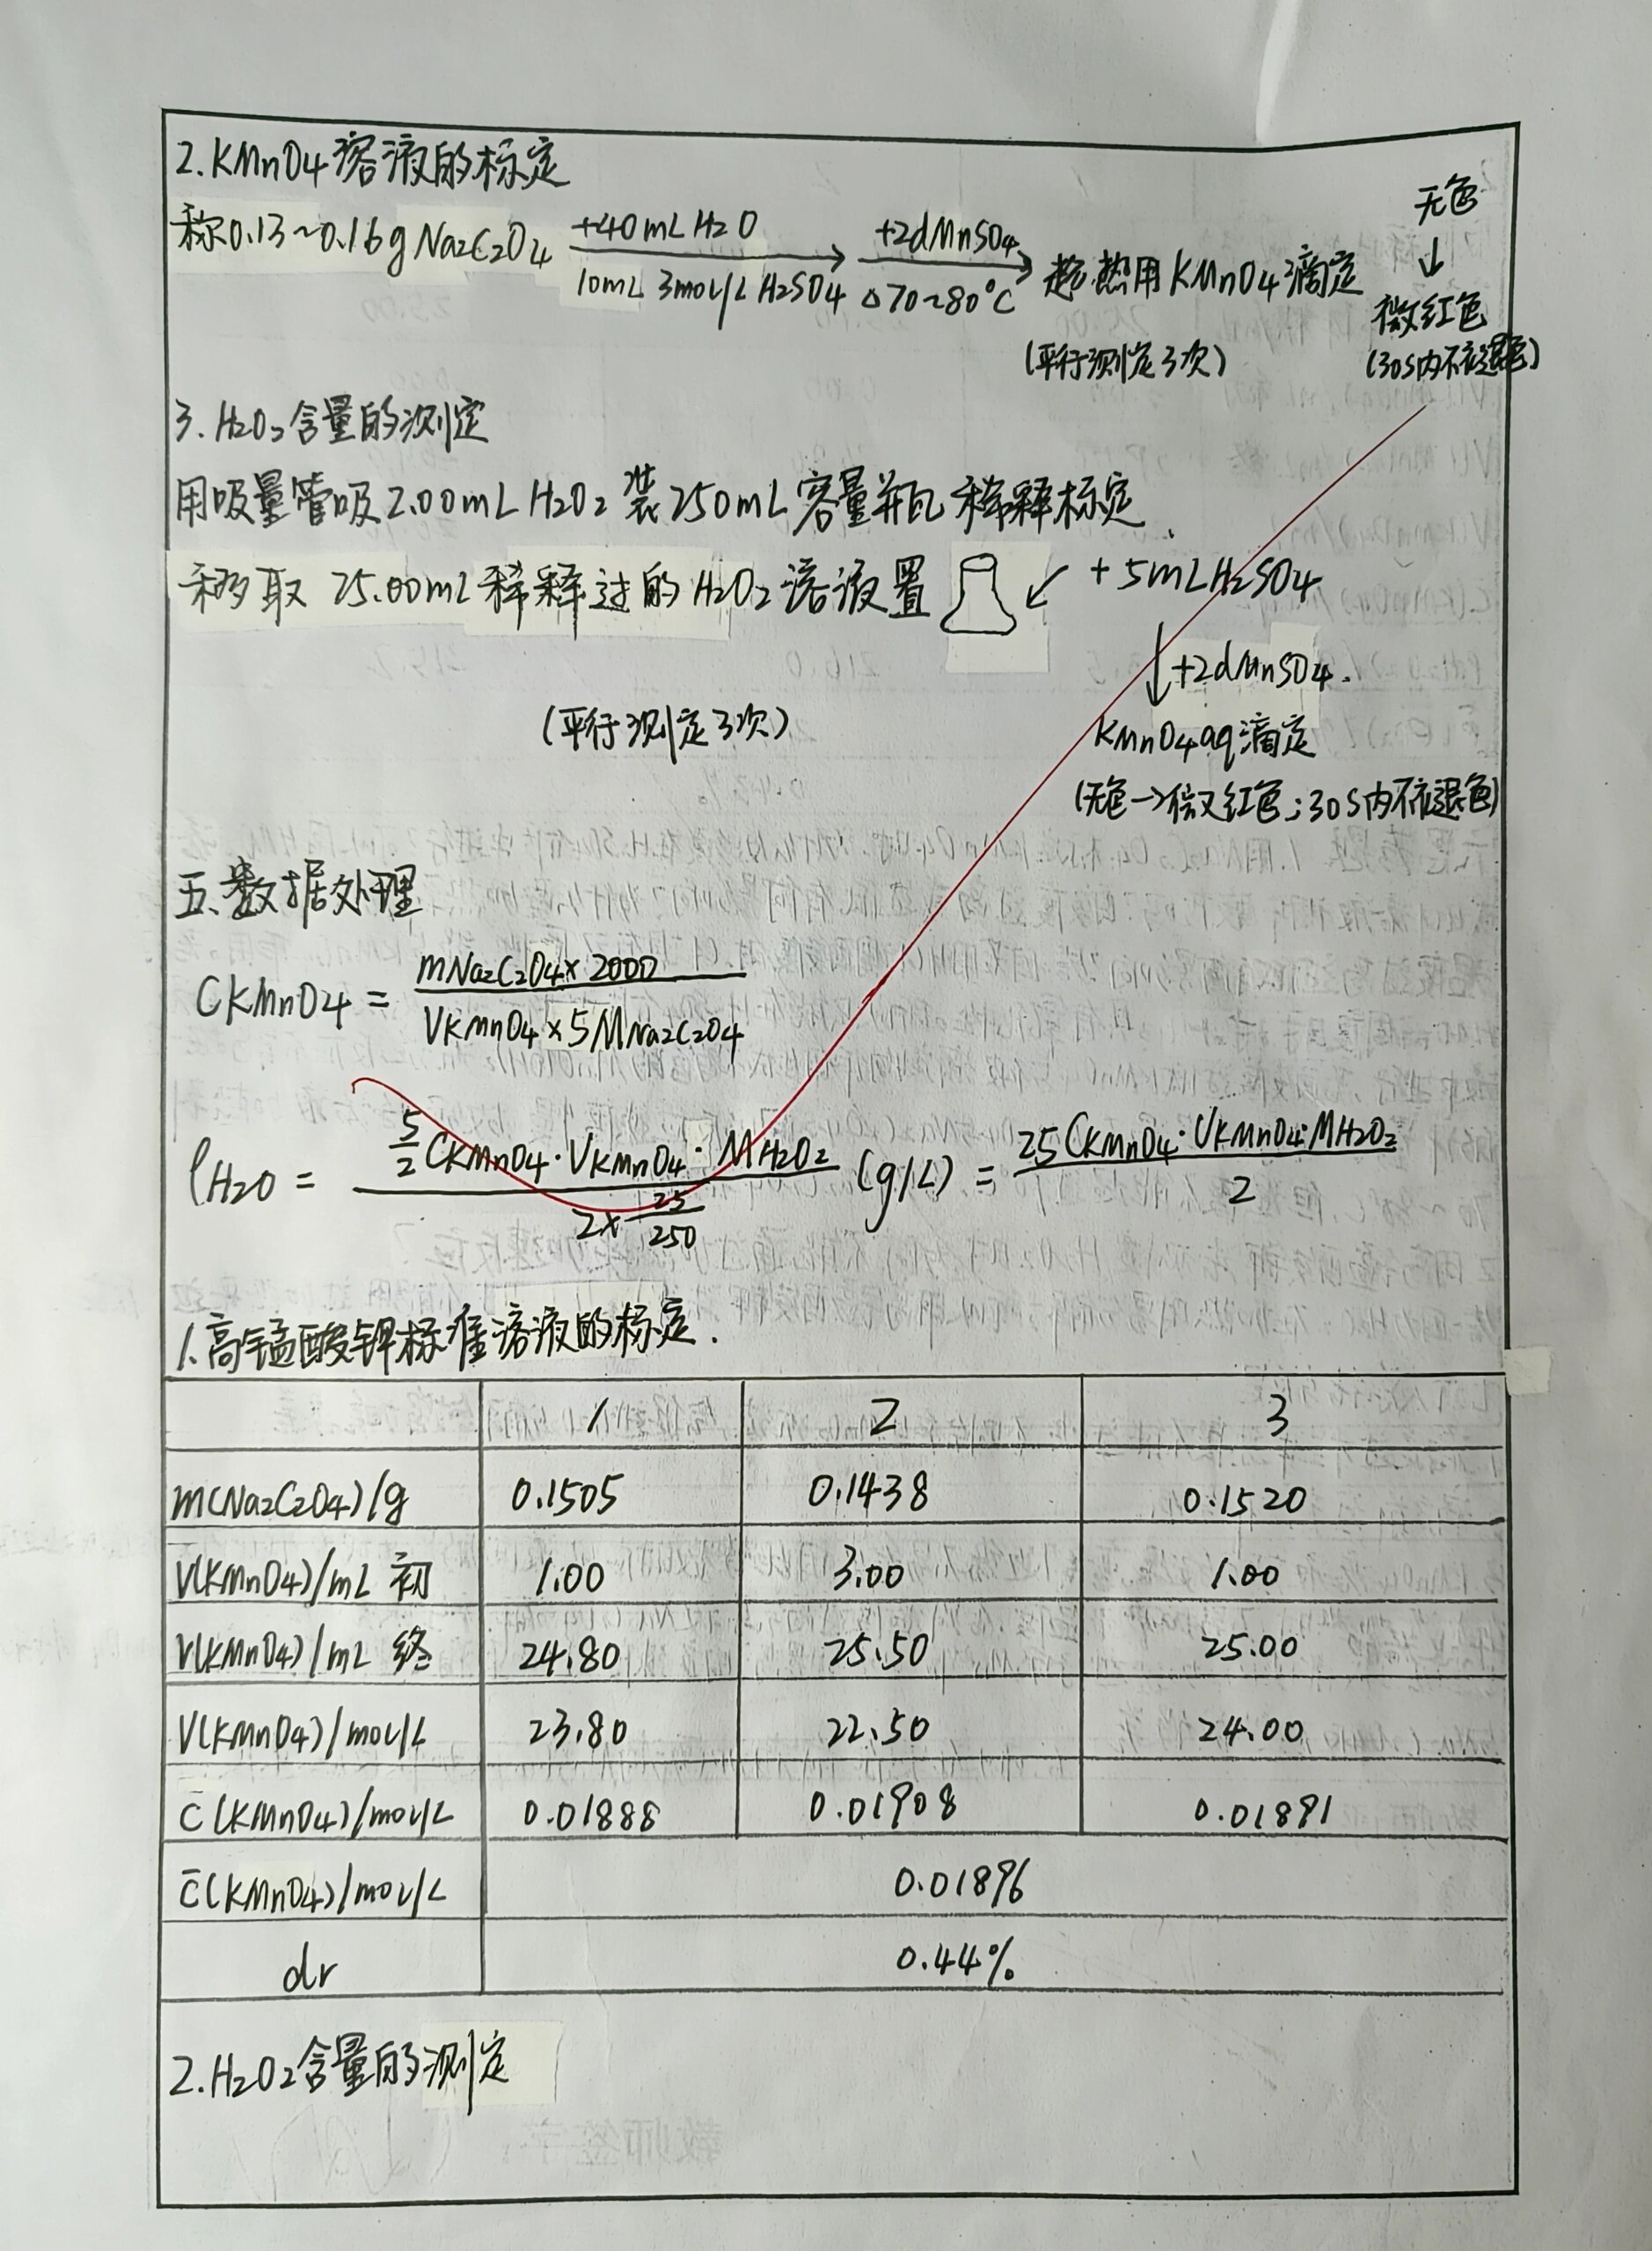 2.KMnO4溶液的标定
称0.13~0.16g Na2C2O4 +40mL H2O 10mL 3mol/L H2SO4 +2dMnSO4 Δ70~80°C 趁热用KMnO4滴定
(平行测定3次)
无色
↓
微红色
(30s内不褪色)
3.H2O2含量的测定
用吸量管吸2.00mL H2O2装250mL容量瓶稀释标定
移取 25.00mL稀释过的H2O2溶液置 ↙ +5mLH2SO4
↓+2dMnSO4.
(平行测定3次)
KMnO4aq滴定
(无色→微红色;30s内不褪色)
五、数据处理
CKMnO4 = mNa2C2O4×2000 / VKMnO4×5MNa2C2O4
ρH2O = 5/2 CKMnO4·VKMnO4·MH2O2 / 2×25/250 (g/L) = 25CKMnO4·VKMnO4·MH2O2 / 2
1.高锰酸钾标准溶液的标定.
1 2 3
m(Na2C2O4)/g 0.1505 0.1438 0.1520
V(KMnO4)/mL 初 1.00 3.00 1.00
V(KMnO4)/mL 终 24.80 25.50 25.00
V(KMnO4)/mol/L 23.80 22.50 24.00
C(KMnO4)/mol/L 0.01888 0.01908 0.01891
C̄(KMnO4)/mol/L 0.01896
dr 0.44%
2.H2O2含量的测定